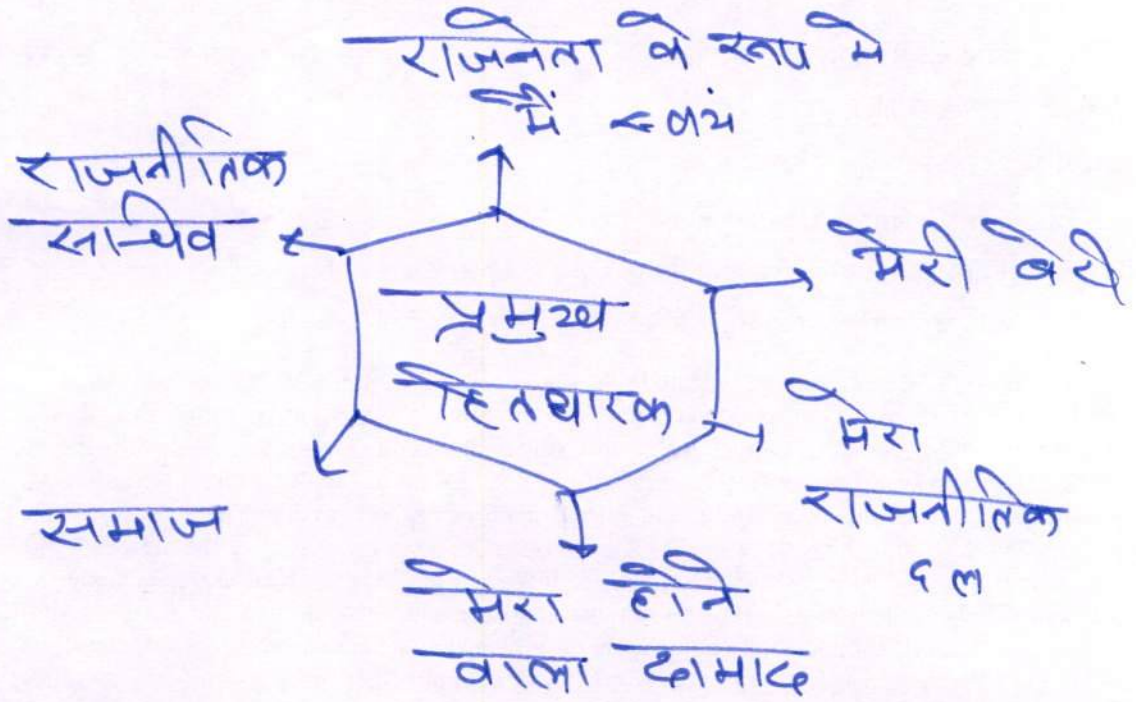 राजनेता के रूप मे
मैं स्वयं
राजनीतिक
सचिव
मेरी बेटी
प्रमुख
हितधारक
मेरा
राजनीतिक
दल
समाज
मेरा होने
वाला दामाद